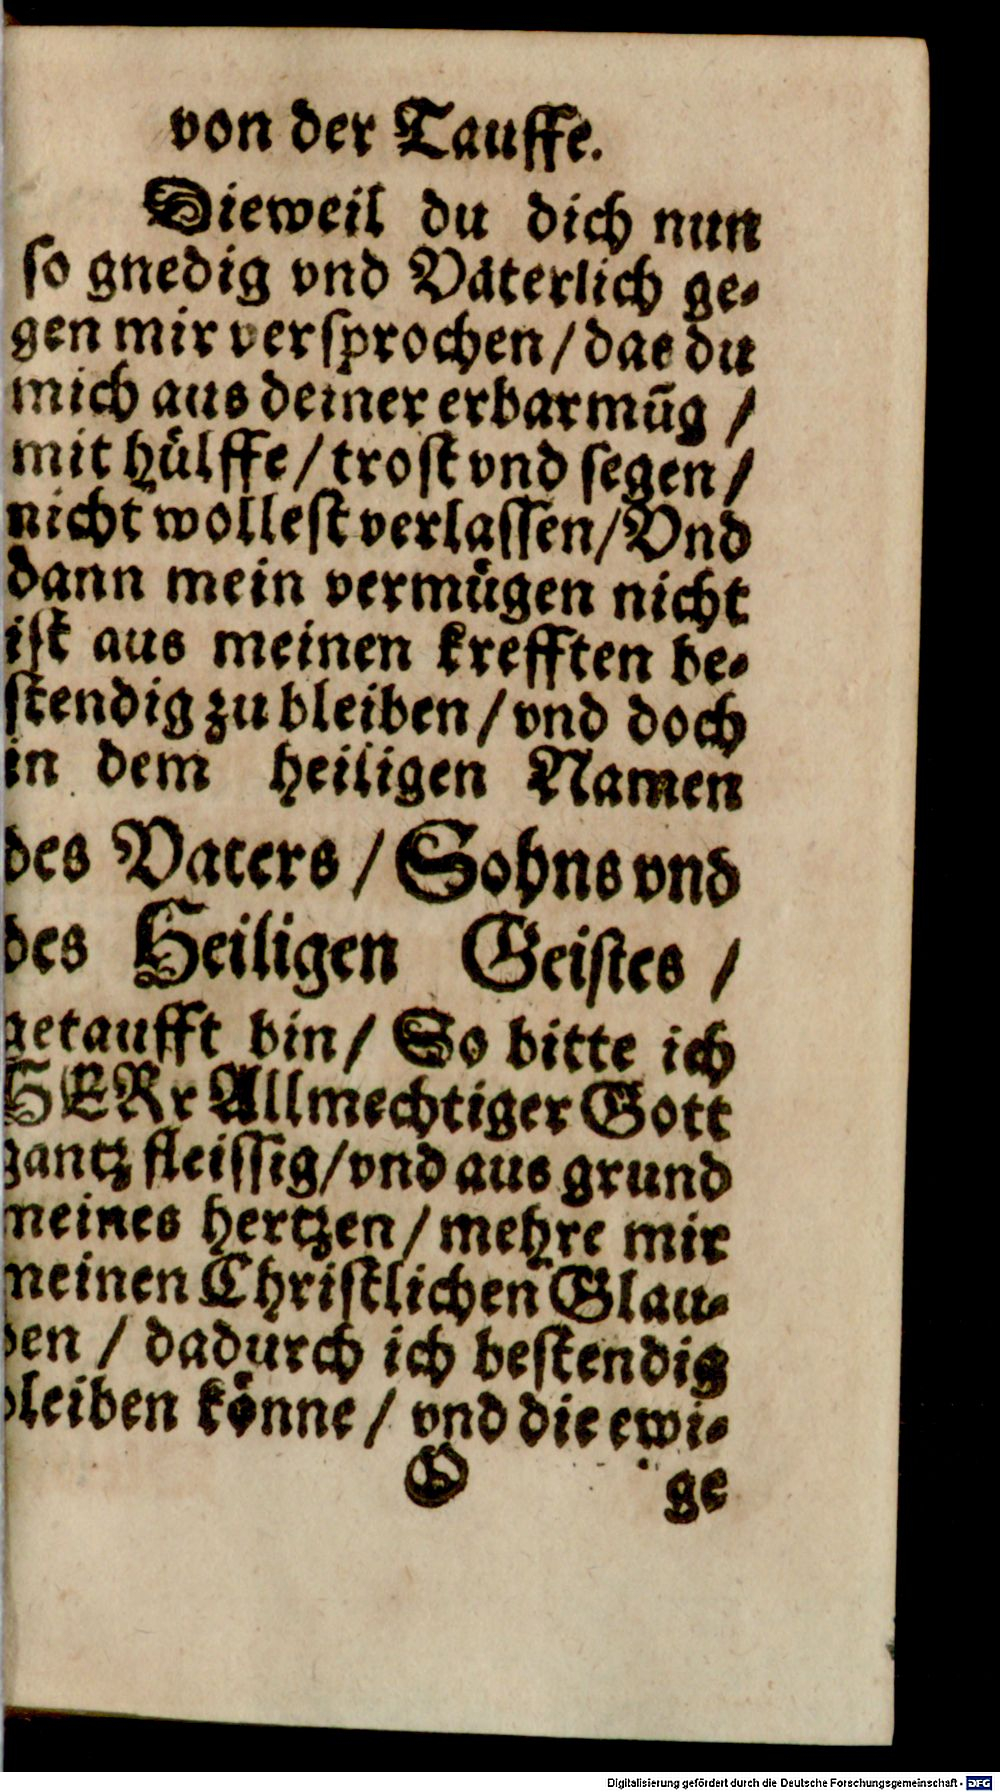 von der Tauffe.
Dieweil du dich nun
so gnedig vnd Väterlich ge-
gen mir versprochen / das du
mich aus deiner erbarmūg /
mit hülffe / trost vnd segen /
nicht wollest verlassen / Vnd
dann mein vermügen nicht
ist aus meinen krefften be-
stendig zu bleiben / vnd doch
in dem heiligen Namen
des Vaters / Sohns vnd
des Heiligen Geistes /
getaufft bin / So bitte ich
HERr Allmechtiger Gott
gantz fleissig / vnd aus grund
meines hertzen / mehre mir
meinen Christlichen Glau-
ben / dadurch ich bestendig
bleiben könne / vnd die ewi-
O ge
Digitalisierung gefördert durch die Deutsche Forschungsgemeinschaft - DFG